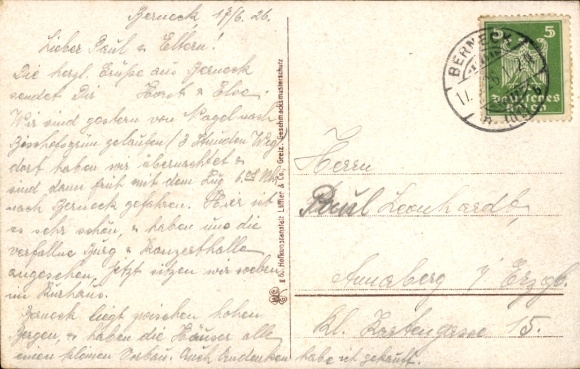 Berneck 17/6. 26.
Lieber Paul u. Eltern!
Die herzl. Grüße aus Berneck
sendet Dir Horst & Else.
Wir sind gestern von Nagel nach
Bischofsgrün gelaufen (3 Stunden Weg)
dort haben wir übernachtet &
sind dann früh mit dem Zug Uhr
nach Berneck gefahren. Hier ist
es sehr schön, & haben uns die
verfallne Burg & Konzerthalle
angesehen, jetzt sitzen wir soeben
im Kurhaus.
Berneck liegt zwischen hohen
Bergen, & haben die Häuser alle
einen schönen Vorbau. Auch Andenken habe ich gekauft.
Hofkunstanstalt Löffler & Co., Greiz. Geschmacksmusterschutz
5 5
Deutsches
Reich
BERNECK
Herrn
Paul Leonhardt
Annaberg i/ Erzgb.
Kl. Kartengasse 15.